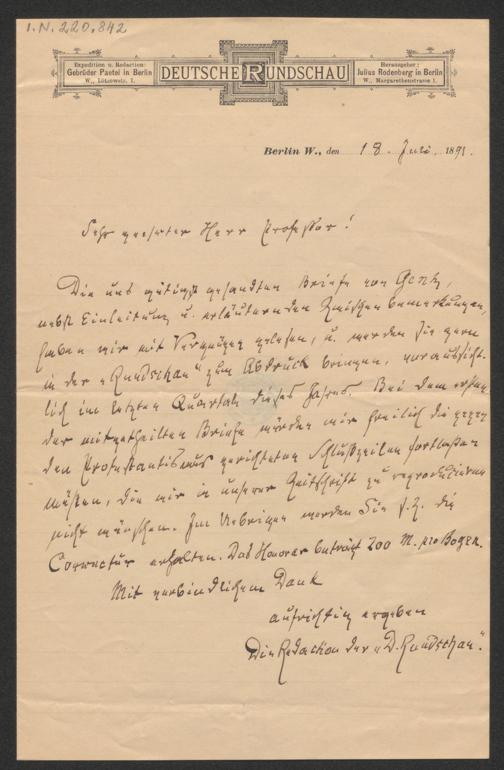 I.N. 220.842
Expedition u. Redaction:
Gebrüder Paetel in Berlin
W., Lützowstr. 7.
DEUTSCHE RUNDSCHAU
Herausgeber:
Julius Rodenberg in Berlin
W., Margarethenstrasse 1.
Berlin W., den 18. Juni 1891.
Sehr geehrter Herr Professor!
Die uns gütigst gesandten Briefe von Gentz,
nebst Einleitung u. erläuternden Zwischenbemerkungen,
haben wir mit Vergnügen gelesen, u. werden sie gern
in der "Rundschau" zum Abdruck bringen, voraussicht-
lich im letzten Quartale dieses Jahres. Bei dem ersten
der mitgetheilten Briefe würden wir freilich die gegen
den Protestantismus gerichteten Schlußzeilen fortlassen
müssen, die wir in unserer Zeitschrift zu reproduciren
nicht wünschen. Im Uebrigen werden Sie s. Z. die
Correctur erhalten. Das Honorar beträgt 200 M. pro Bogen.
Mit verbindlichem Dank
aufrichtig ergeben
Die Redaction der "D. Rundschau".